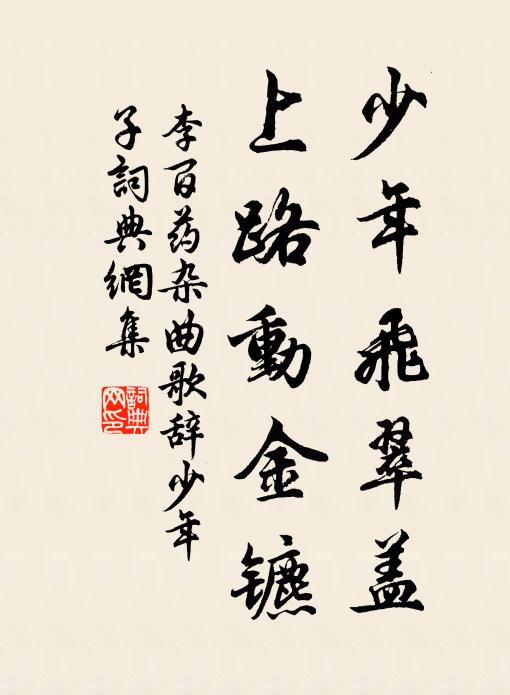 少年飛翠蓋
上路動金镳
李百药杂曲歌辞少年
子詞典網集
詞典
网印